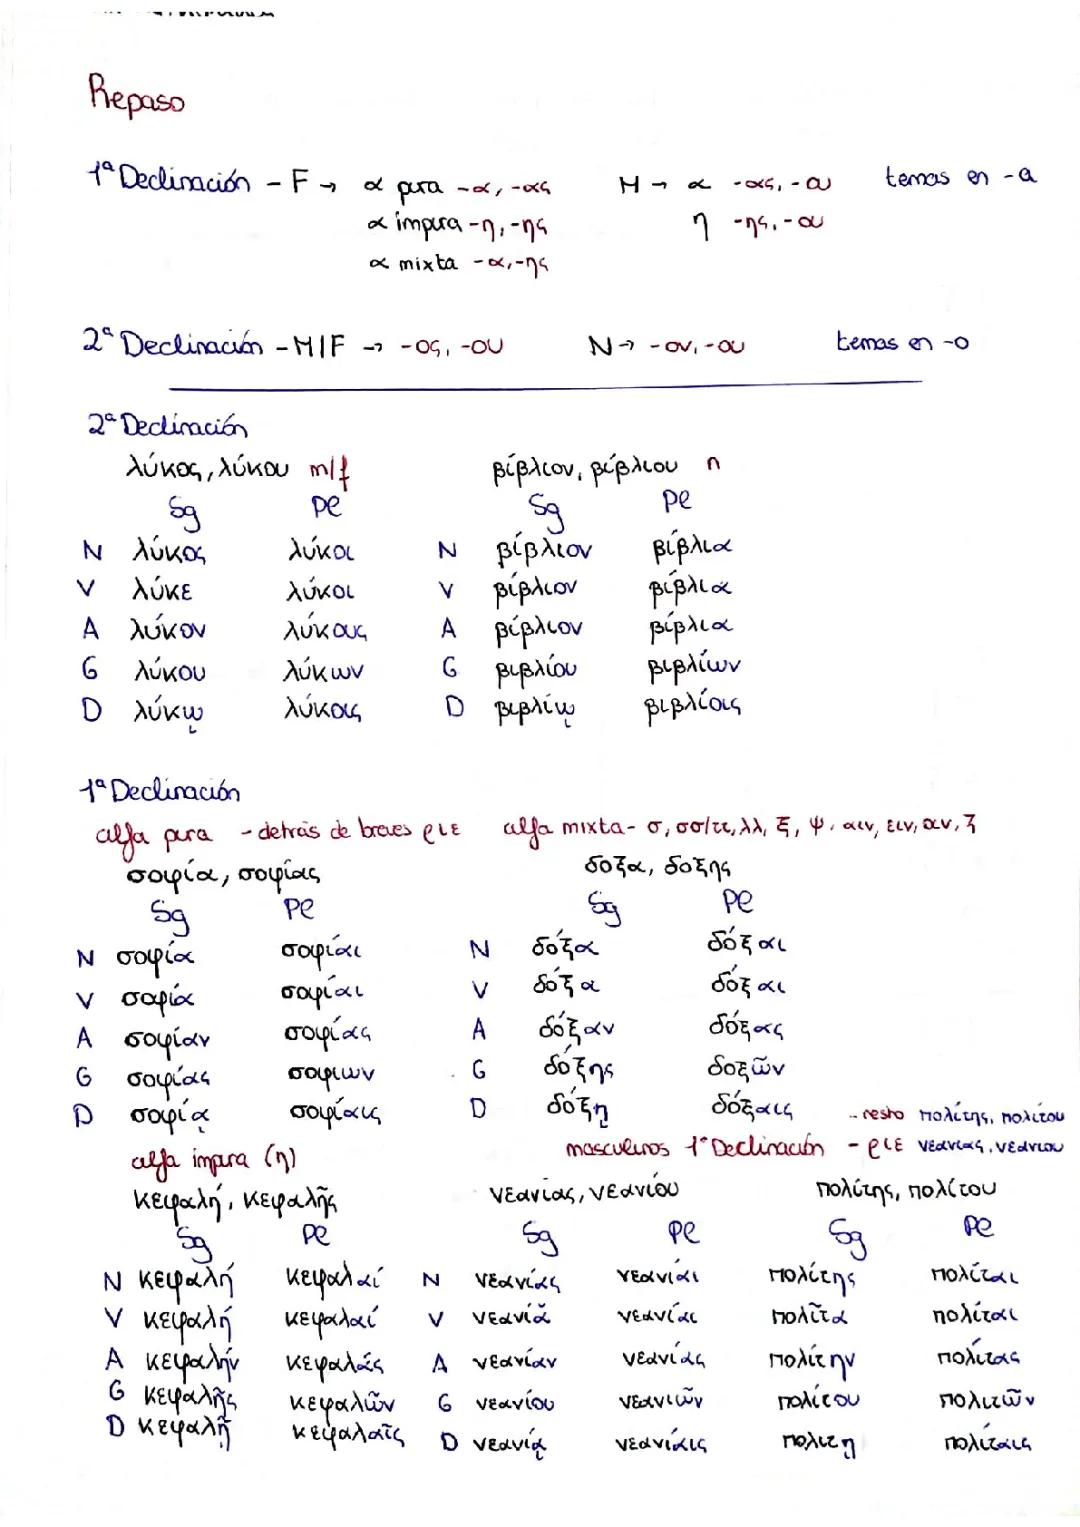 Repaso
1ª Declinación - F → α pura -α, -ας M → α -ας, -ου temas en -α
α impura -η, -ης η -ης, -ου
α mixta -α, -ης
2ª Declinación - M/F → -ος, -ου N → -ον, -ου temas en -ο
2ª Declinación
λύκος, λύκου m/f βίβλιον, βίβλιου n
Sg Pl Sg Pl
N λύκος λύκοι N βίβλιον βίβλια
V λύκε λύκοι V βίβλιον βίβλια
A λύκον λύκους A βίβλιον βίβλια
G λύκου λύκων G βιβλίου βιβλίων
D λύκῳ λύκοις D βιβλίῳ βιβλίοις
1ª Declinación
alfa pura - detrás de breves ριε alfa mixta - σ, σσ/ττ, λλ, ξ, ψ, αιν, ειν, αν, ζ
σοφία, σοφίας δοξα, δοξης
Sg Pl Sg Pl
N σοφία σοφίαι N δόξα δόξαι
V σοφία σοφίαι V δόξα δόξαι
A σοφίαν σοφίας A δόξαν δόξας
G σοφίας σοφιων G δόξης δοξῶν
D σοφίᾳ σοφίαις D δόξῃ δόξαις - resto πολίτης, πολίτου
alfa impura (η) masculinos 1ª Declinación - ριε νεανίας, νεανίου
κεφαλή, κεφαλῆς νεανίας, νεανίου πολίτης, πολίτου
Sg Pl Sg Pl Sg Pl
N κεφαλή κεφαλαί N νεανίας νεανίαι πολίτης πολίται
V κεφαλή κεφαλαί V νεανία νεανίαι πολῖτα πολίται
A κεφαλήν κεφαλάς A νεανίαν νεανίας πολίτην πολίτας
G κεφαλῆς κεφαλῶν G νεανίου νεανιῶν πολίτου πολιτῶν
D κεφαλῇ κεφαλαῖς D νεανίᾳ νεανίαις πολιτῃ πολίταις